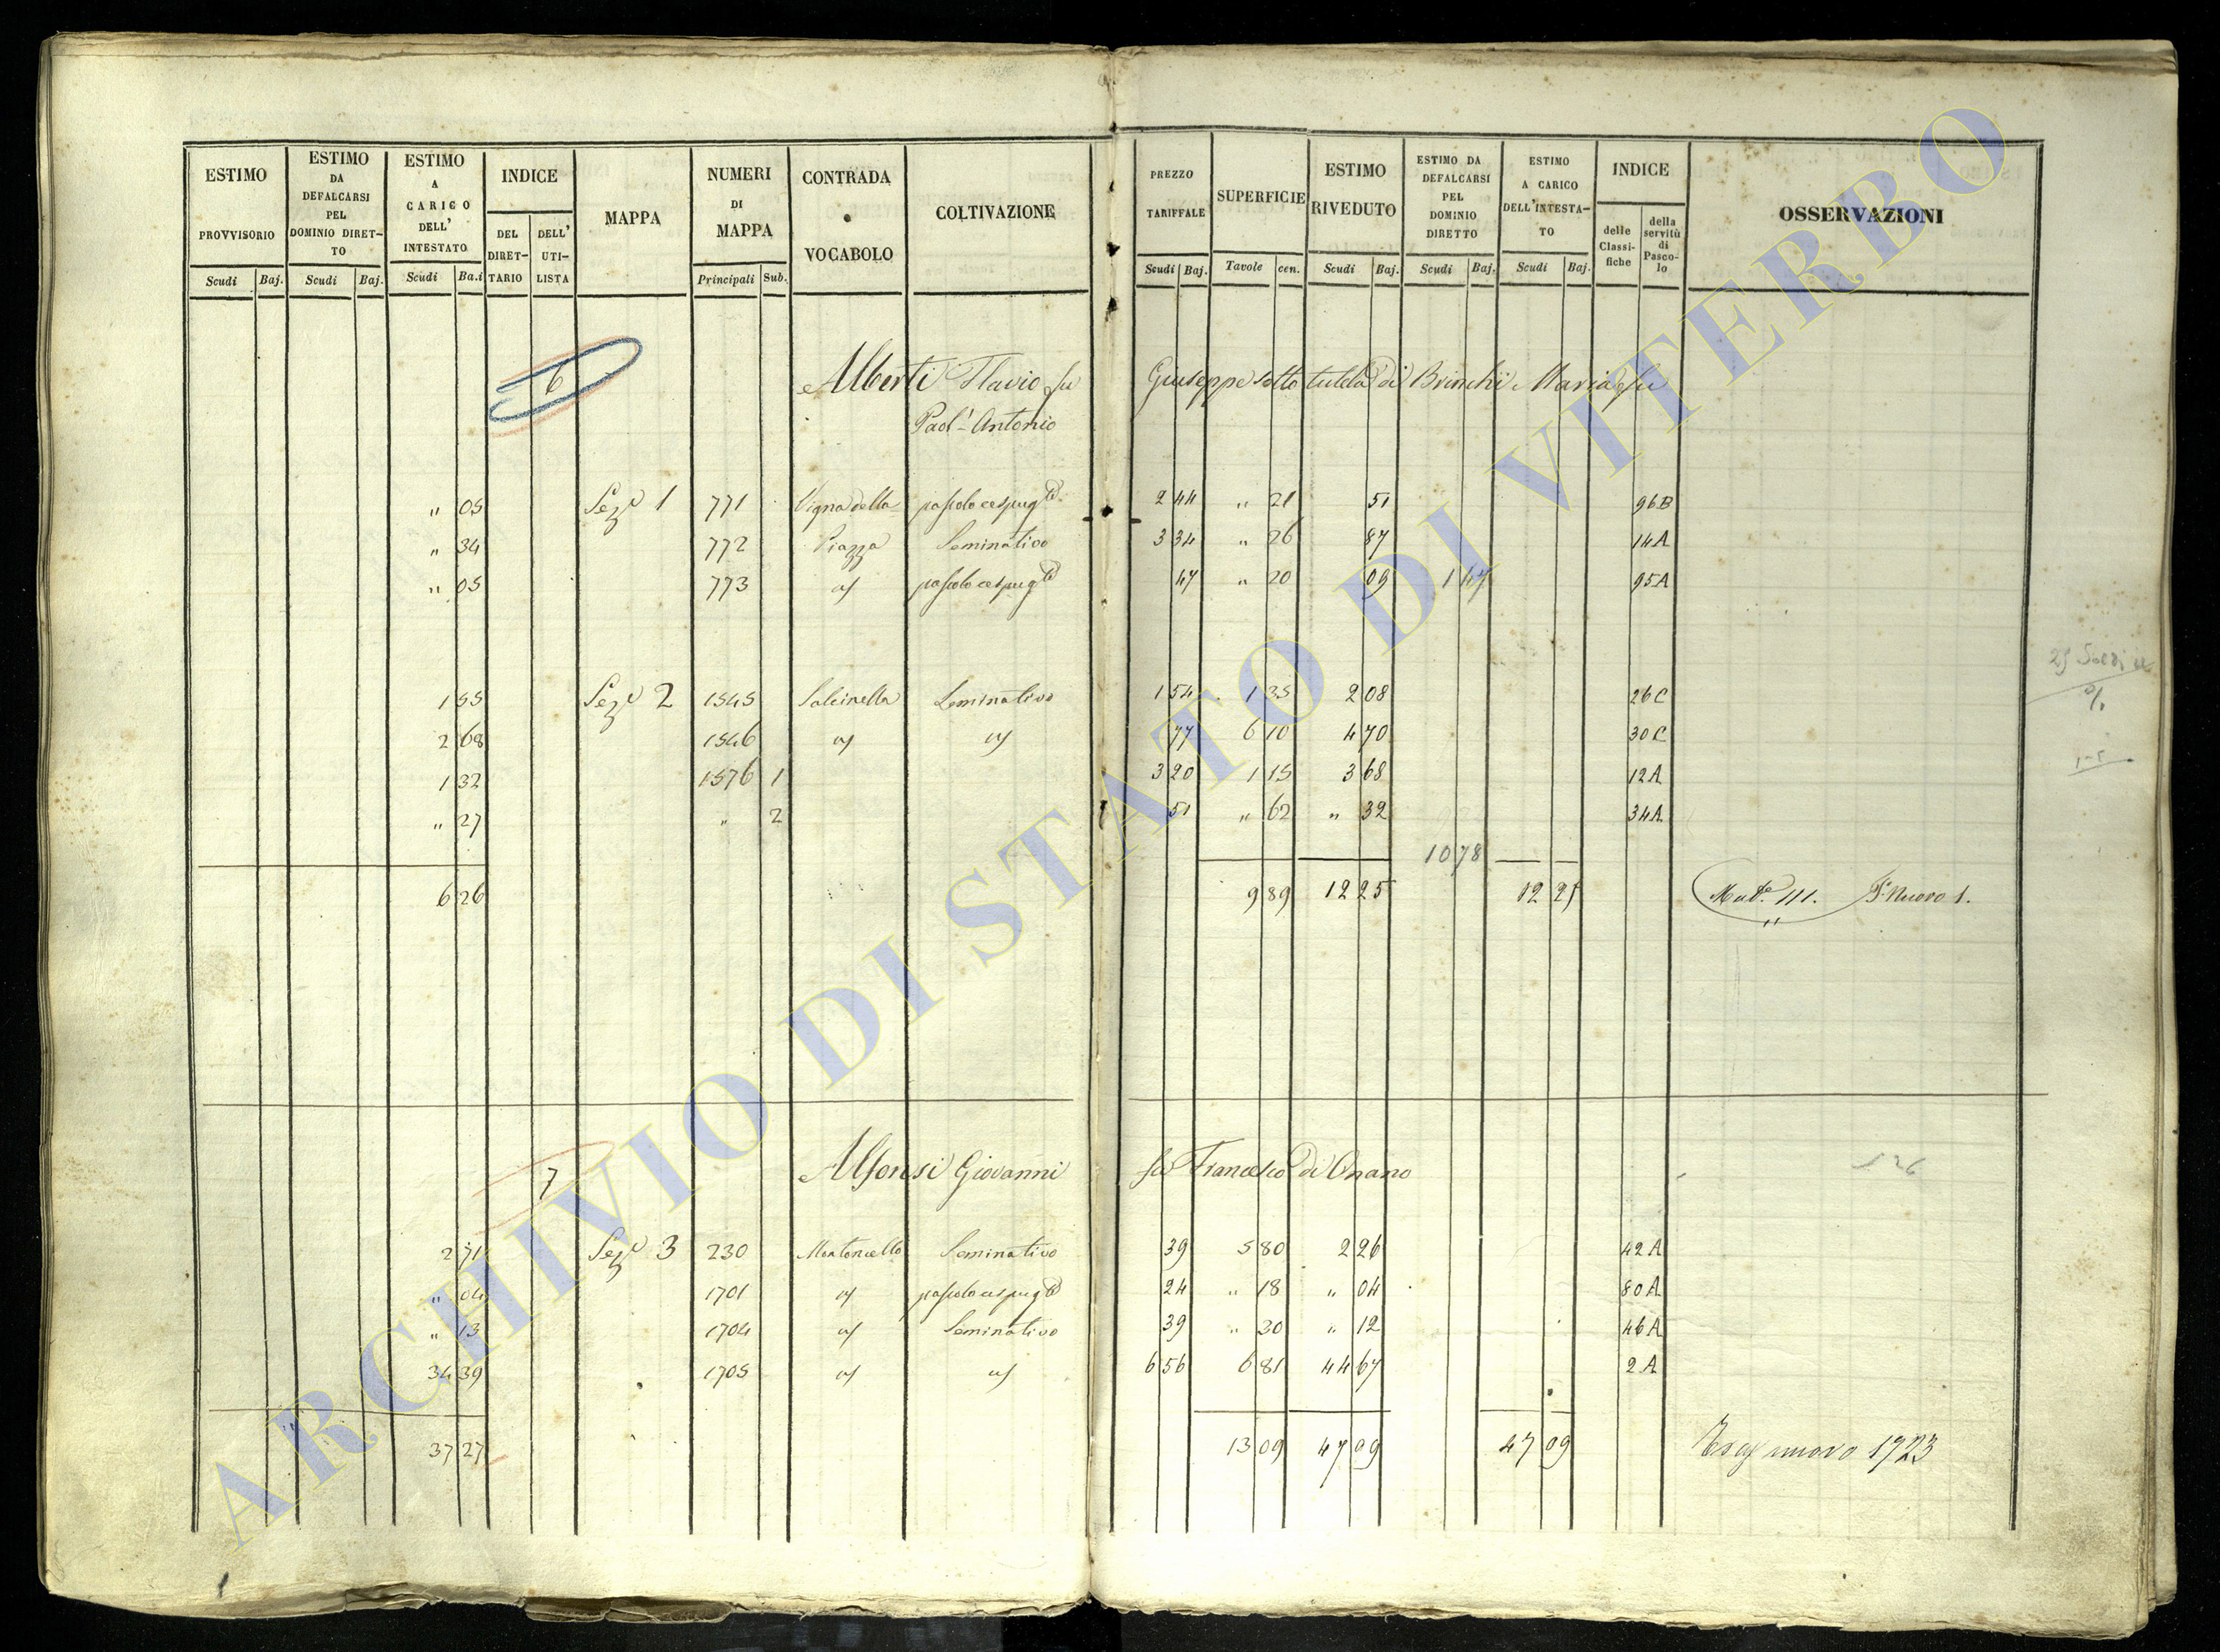 ESTIMO PROVVISORIO Scudi Baj.
ESTIMO DA DEFALCARSI PEL DOMINIO DIRET-TO Scudi Baj.
ESTIMO A CARICO DELL' INTESTATO Scudi Ba.i
INDICE DEL DIRET-TARIO DELL' UTI-LISTA
MAPPA
NUMERI DI MAPPA Principali Sub.
CONTRADA o VOCABOLO
COLTIVAZIONE
PREZZO TARIFFALE Scudi Baj.
SUPERFICIE Tavole cen.
ESTIMO RIVEDUTO Scudi Baj.
ESTIMO DA DEFALCARSI PEL DOMINIO DIRETTO Scudi Baj.
ESTIMO A CARICO DELL'INTESTA-TO Scudi Baj.
INDICE delle Classi-fiche della servitù di Pasco-lo
OSSERVAZIONI
6 Alberti Flavio fu Giuseppe sotto tutela di Brinchi Maria fu
Paol' Antonio
" 05 Seze 1 771 Vigna della pascolo cespugto 2 44 " 21 51 96B
" 34 772 Piazza Seminativo 3 34 " 26 87 14A
" 05 773 a/ pascolo cespugto 47 " 20 09 1 47 95A
1 55 Seze 2 1545 Salcinella Seminativo 1 54 1 35 2 08 26C
2 68 1546 a/ a/ 77 6 10 4 70 30C
1 32 1576 1 3 20 1 15 3 68 12A
" 27 " 2 51 " 62 " 32 34A
10 78
6 26 9 89 12 25 12 25 Mut. III. P. Nuovo 1.
7 Alfonsi Giovanni fu Francesco di Onano
2 71 Seze 3 230 Montoncello Seminativo 39 5 80 2 26 42A
" 04 1701 a/ pascolo cespugto 24 " 18 " 04 80A
" 13 1704 a/ Seminativo 39 " 30 " 12 46A
34 39 1705 a/ a/ 6 56 6 81 44 67 2A
37 27 13 09 47 09 47 09 nuovo 1723
ARCHIVIO DI STATO DI VITERBO